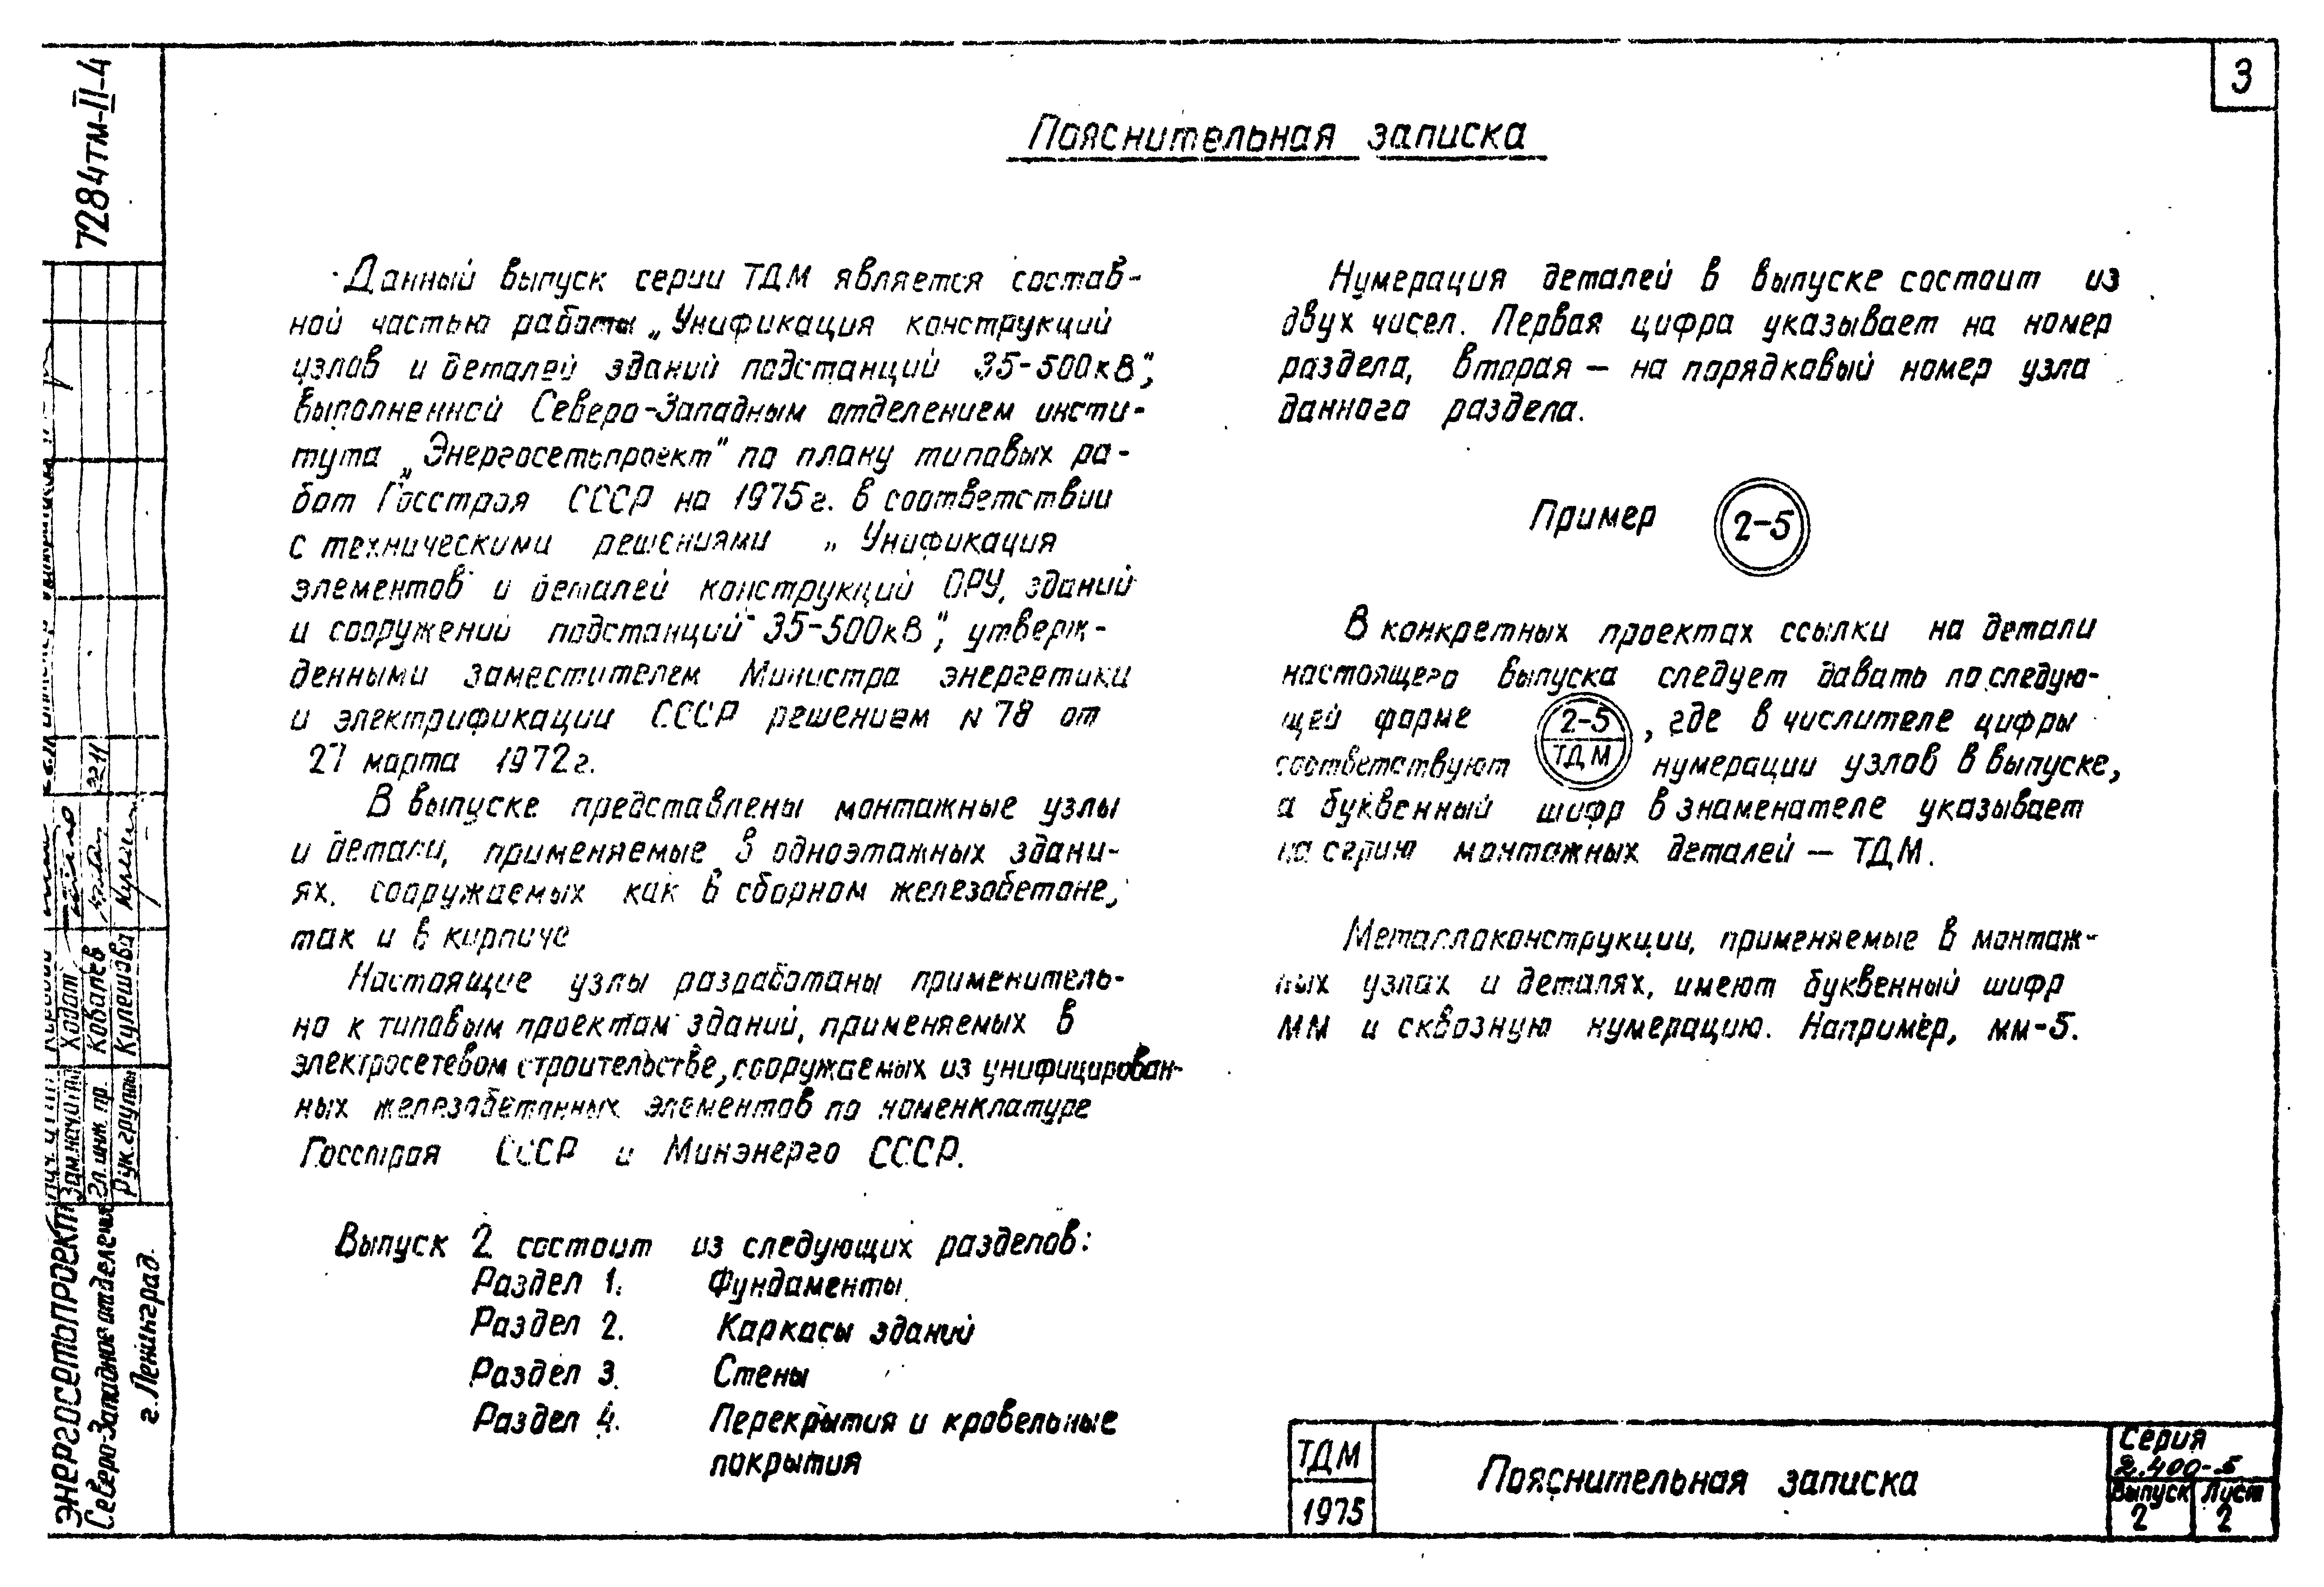 3
7284тм-II-4
Пояснительная записка
Данный выпуск серии ТДМ является состав-
ной частью работы „Унификация конструкций
узлов и деталей зданий подстанций 35-500кВ",
выполненной Северо-Западным отделением инсти-
тута „Энергосетьпроект" по плану типовых ра-
бот Госстроя СССР на 1975г. в соответствии
с техническими решениями „Унификация
элементов и деталей конструкций ОРУ, зданий
и сооружений подстанций 35-500кВ", утверж-
денными заместителем Министра энергетики
и электрификации СССР решением N 78 от
27 марта 1972г.
В выпуске представлены монтажные узлы
и детали, применяемые в одноэтажных здани-
ях, сооружаемых как в сборном железобетоне,
так и в кирпиче
Настоящие узлы разработаны применитель-
но к типовым проектам зданий, применяемых в
электросетевом строительстве, сооружаемых из унифицирован-
ных железобетонных элементов по номенклатуре
Госстроя СССР и Минэнерго СССР.
Выпуск 2 состоит из следующих разделов:
Раздел 1. Фундаменты
Раздел 2. Каркасы зданий
Раздел 3. Стены
Раздел 4. Перекрытия и кровельные
покрытия
Нумерация деталей в выпуске состоит из
двух чисел. Первая цифра указывает на номер
раздела, вторая — на порядковый номер узла
данного раздела.
Пример 2-5
В конкретных проектах ссылки на детали
настоящего выпуска следует давать по следую-
щей форме 2-5 , где в числителе цифры
соответствуют ТДМ нумерации узлов в выпуске,
а буквенный шифр в знаменателе указывает
на серию монтажных деталей — ТДМ.
Металлоконструкции, применяемые в монтаж-
ных узлах и деталях, имеют буквенный шифр
ММ и сквозную нумерацию. Например, мм-5.
Зам.нач.отд Ходот
Гл. инж. пр. Ковалев
Рук.группы Кулешова
ЭНЕРГОСЕТЬПРОЕКТ
Северо-Западное отделение
г. Ленинград
ТДМ
1975
Пояснительная записка
Серия
2.400-5
Выпуск Лист
2 2